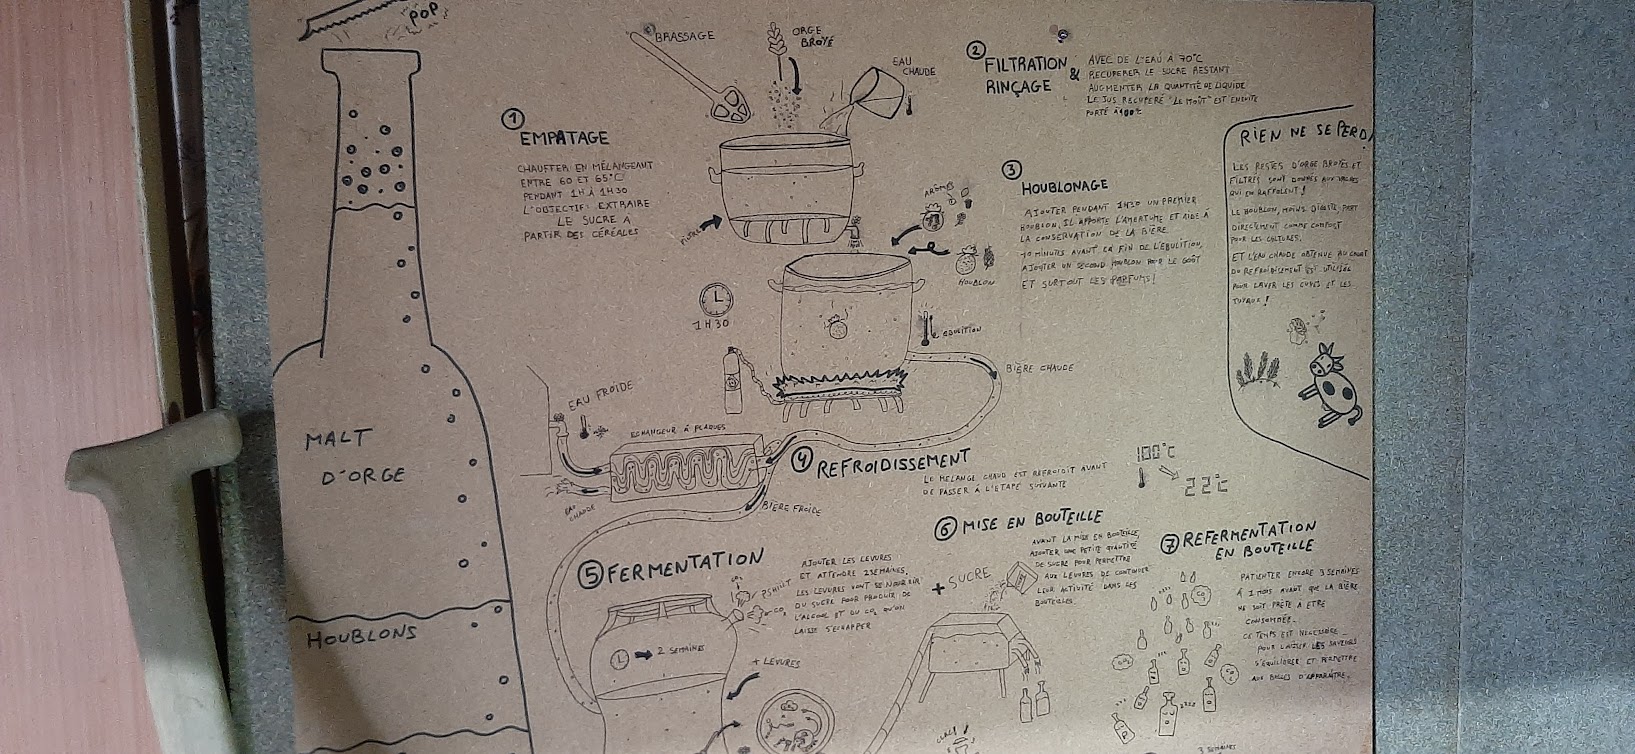 POP
BRASSAGE
ORGE
BROYÉ
EAU
CHAUDE
① EMPATAGE
CHAUFFER EN MÉLANGEANT
ENTRE 60 ET 65°C
PENDANT 1H À 1H30
L'OBJECTIF: EXTRAIRE
LE SUCRE A
PARTIR DES CÉRÉALES
FILTRE
② FILTRATION &
RINÇAGE
AVEC DE L'EAU À 70°C
RECUPERER LE SUCRE RESTANT
AUGMENTER LA QUANTITÉ DE LIQUIDE
LE JUS RECUPERÉ "LE MOÛT" EST ENSUITE
PORTÉ À 100°C
③ HOUBLONAGE
AJOUTER PENDANT 1H30 UN PREMIER
HOUBLON, IL APPORTE L'AMERTUME ET AIDE À
LA CONSERVATION DE LA BIÈRE
10 MINUTES AVANT LA FIN DE L'EBULITION,
AJOUTER UN SECOND HOUBLON POUR LE GOÛT
ET SURTOUT LES PARFUMS!
ARÔMES
HOUBLON
1H30
EBULITION
BIÈRE CHAUDE
RIEN NE SE PERD
LES RESTES D'ORGE BROYÉS ET
FILTRÉS SONT DONNÉS AUX VACHES
QUI EN RAFFOLENT!
LE HOUBLON, MOINS DIGESTE, PART
DIRECTEMENT COMME COMPOST
POUR LES CULTURES.
ET L'EAU CHAUDE OBTENUE AU COURT
DU REFROIDISSEMENT EST UTILISÉE
POUR LAVER LES CUVES ET LES
TUYAUX!
EAU FROIDE
ECHANGEUR À PLAQUES
EAU
CHAUDE
BIÈRE FROIDE
④ REFROIDISSEMENT
LE MELANGE CHAUD EST REFROIDIT AVANT
DE PASSER À L'ETAPE SUIVANTE
100°C
22°C
MALT
D'ORGE
HOUBLONS
⑤ FERMENTATION
AJOUTER LES LEVURES
ET ATTENDRE 2 SEMAINES,
LES LEVURES VONT SE NOURRIR
DU SUCRE POUR PRODUIRE DE
L'ALCOOL ET DU CO₂ QU'ON
LAISSE S'ECHAPPER
CO₂
PSHIUT
CO₂
2 SEMAINES
+ LEVURES
⑥ MISE EN BOUTEILLE
AVANT LA MISE EN BOUTEILLE,
AJOUTER UNE PETITE QUANTITÉ
DE SUCRE POUR PERMETTRE
AUX LEVURES DE CONTINUER
LEUR ACTIVITÉ DANS LES
BOUTEILLES
+ SUCRE
CLAC!
⑦ REFERMENTATION
EN BOUTEILLE
PATIENTER ENCORE 3 SEMAINES
À 1 MOIS AVANT QUE LA BIÈRE
NE SOIT PRÊTE A ETRE
CONSOMMÉE.
CE TEMPS EST NECESSAIRE
POUR LAISSER LES SAVEURS
S'ÉQUILIBRER ET PERMETTRE
AUX BULLES D'APPARAÎTRE.
CO₂
CO₂
CO₂
3 SEMAINES